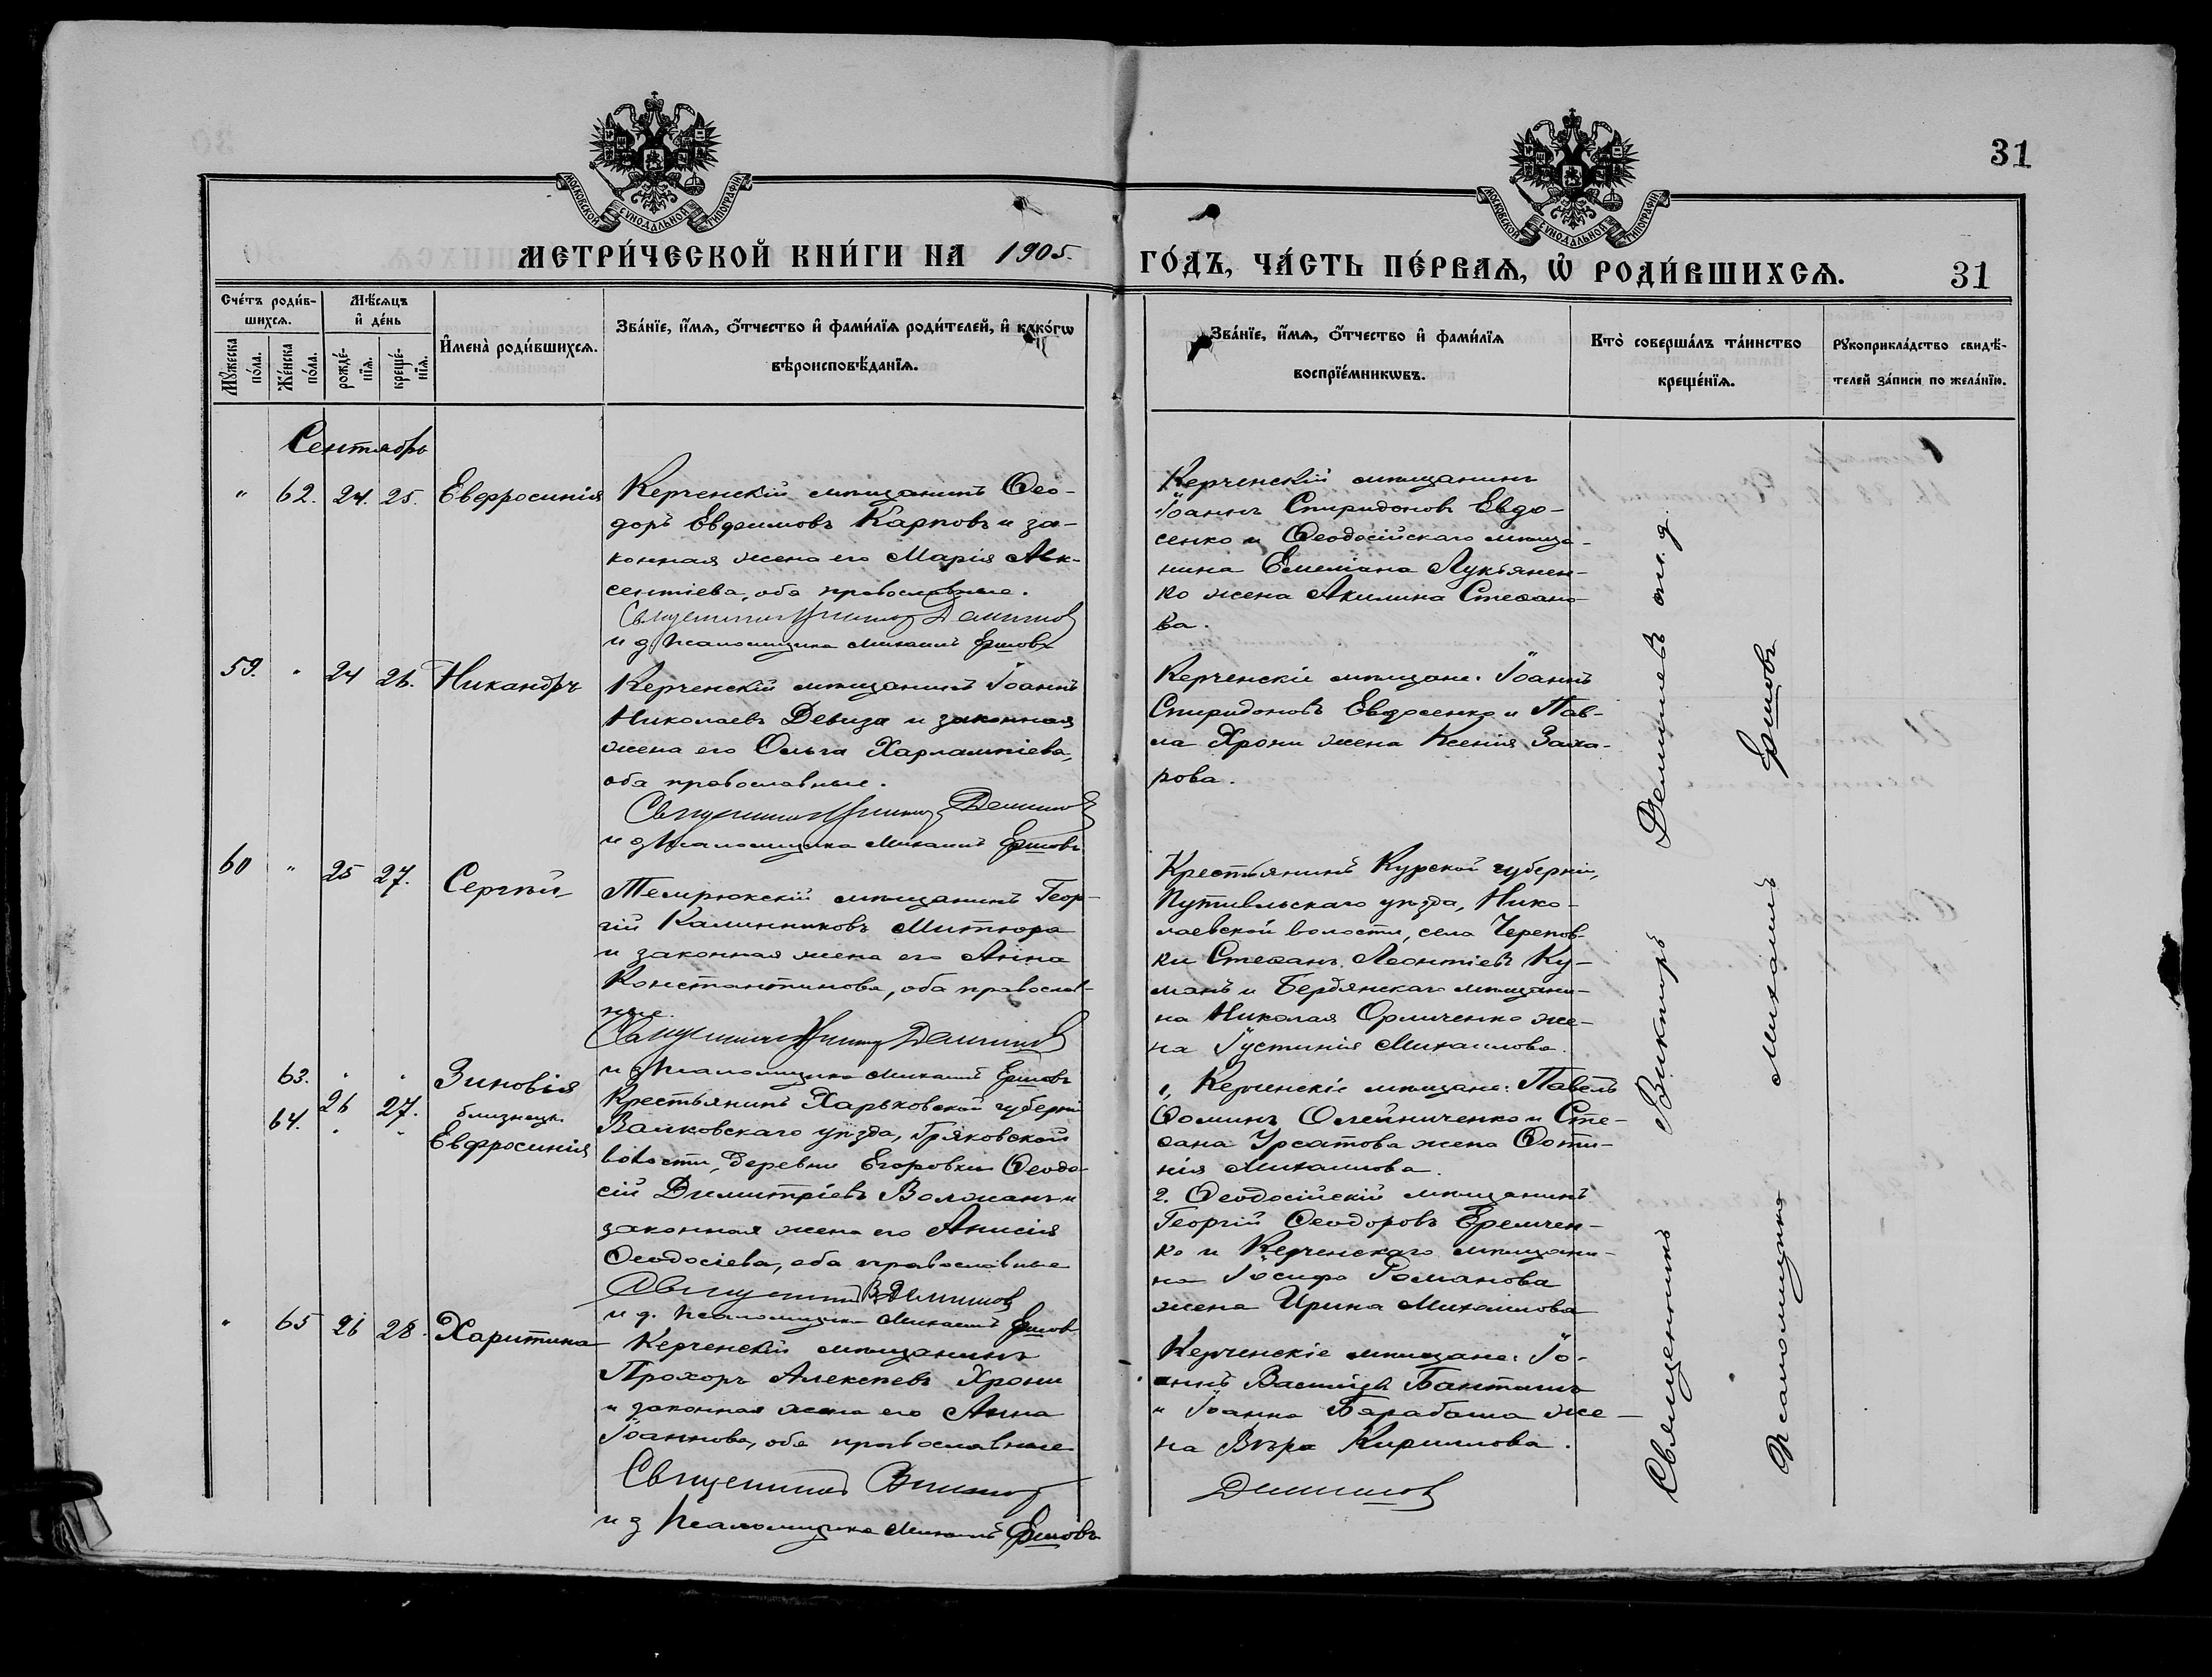 31
МОСКОВСКОЙ СѴНОДАЛЬНОЙ ТИПОГРАФІИ
МОСКОВСКОЙ СѴНОДАЛЬНОЙ ТИПОГРАФІИ
МЕТРИ́ЧЕСКОЙ КНИ́ГИ НА 1905.
ГО́ДЪ, ЧА́СТЬ ПЕ́РВАѦ, Ѡ҆ РОДИ́ВШИХСѦ.
31
Сче́тъ роди́в-
шихсѧ.
Мꙋ́жеска
по́ла.
Же́нска
по́ла.
Мѣ́сѧцъ
и҆ де́нь
рожде́-
нїѧ.
креще́-
нїѧ.
И҆мена̀ роди́вшихсѧ.
Зва́нїе, и҆́мѧ, ѻ҆́тчество и҆ фами́лїѧ роди́телей, и҆ како́гѡ
вѣроисповѣ́данїѧ.
Зва́нїе, и҆́мѧ, ѻ҆́тчество и҆ фами́лїѧ
воспрїе́мникѡвъ.
Кто̀ соверша́лъ та́инство
креще́нїѧ.
Рꙋкоприкла́дство свидѣ́-
телей за́писи по жела́нїю.
Сентябрь
" 62. 24. 25. Евфросинія
Керченскій мѣщанинъ Ѳео-
доръ Евфимовъ Карповъ и за-
конная жена его Марія Авк-
сентіева, оба православные.
Священникъ Викторъ Демишевъ
и д псаломщика Михаилъ Ершовъ
Керченскій мѣщанинъ
Іоаннъ Спиридоновъ Евдо-
сенко и Ѳеодосійскаго мѣща-
нина Емеліана Лукьянен-
ко жена Акилина Стефано-
ва.
59. " 24 26. Никандръ
Керченскій мѣщанинъ Іоаннъ
Николаевъ Девиза и законная
жена его Ольга Харлампіева,
оба православные.
Священникъ Викторъ Демишевъ
и д псаломщика Михаилъ Ершовъ
Керченскіе мѣщане: Іоаннъ
Спиридоновъ Евдосенко и Пав-
ла Хрони жена Ксенія Заха-
рова.
60 " 25 27. Сергѣй
Темрюкскій мѣщанинъ Геор-
гій Калинниковъ Митюра
и законная жена его Анна
Константинова, оба православ-
ные.
Священникъ Викторъ Демишевъ
и д псаломщика Михаилъ Ершовъ
Крестьянинъ Курской губерніи,
Путивльскаго уѣзда, Нико-
лаевской волости, села Черепов-
ки Стефанъ Леонтіевъ Ку-
манъ и Бердянскаго мѣщани-
на Николая Орличенко же-
на Іустинія Михаилова.
63. " " Зиновія
26 27. близнецы
64. " " Евфросинія
Крестьянинъ Харьковской губерніи
Валковскаго уѣзда, Гряковской
волости, деревни Егоровки Ѳеодо-
сій Димитріевъ Воложанъ и
законная жена его Анисія
Ѳеодосіева, оба православные
Священникъ В Демишевъ
и д. псаломщика Михаилъ Ершовъ
1, Керченскіе мѣщане: Павелъ
Ѳоминъ Олейниченко и Сте-
фана Урсатова жена Фоти-
нія Михаилова.
2. Ѳеодосійскій мѣщанинъ
Георгій Ѳеодоровъ Еремчен-
ко и Керченскаго мѣщани-
на Іосифа Романова
жена Ирина Михаилова
" 65 26 28. Харитина
Керченскій мѣщанинъ
Прохоръ Алексѣевъ Хрони
и законная жена его Анна
Іоаннова, оба православные
Священникъ Викторъ
и д псаломщика Михаилъ Ершовъ
Керченскіе мѣщане: Іо-
аннъ Васильевъ Бантышъ
и Іоанна Барабаша же-
на Вѣра Кириллова.
Демишевъ
Священникъ Викторъ Демишевъ
Псаломщикъ Михаилъ Ершовъ